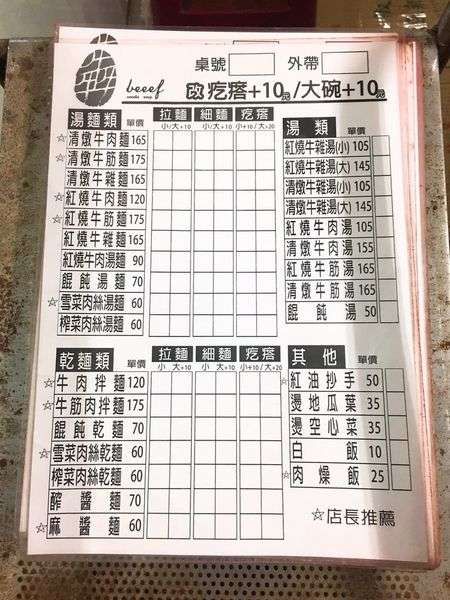 桌號 外帶
beeef
noodle soup
改疙瘩+10元/大碗+10元
湯麵類 單價 拉麵 細麵 疙瘩
小/大+10 小/大+10 小+10/大+20
☆清燉牛肉麵 165
☆清燉牛筋麵 175
清燉牛雜麵 165
☆紅燒牛肉麵 120
☆紅燒牛筋麵 175
紅燒牛雜麵 165
紅燒牛肉湯麵 90
餛飩湯麵 70
☆雪菜肉絲湯麵 60
榨菜肉絲湯麵 60
湯類 單價
紅燒牛雜湯(小) 105
紅燒牛雜湯(大) 145
清燉牛雜湯(小) 105
清燉牛雜湯(大) 145
紅燒牛肉湯 105
清燉牛肉湯 155
紅燒牛筋湯 165
清燉牛筋湯 165
餛飩湯 50
乾麵類 單價 拉麵 細麵 疙瘩
小 大+10 小 大+10 小+10/大+20
☆牛肉拌麵 120
☆牛筋肉拌麵 175
餛飩乾麵 70
☆雪菜肉絲乾麵 60
榨菜肉絲乾麵 60
醡醬麵 70
☆麻醬麵 60
其他 單價
☆紅油抄手 50
燙地瓜葉 35
燙空心菜 35
白飯 10
☆肉燥飯 25
☆店長推薦